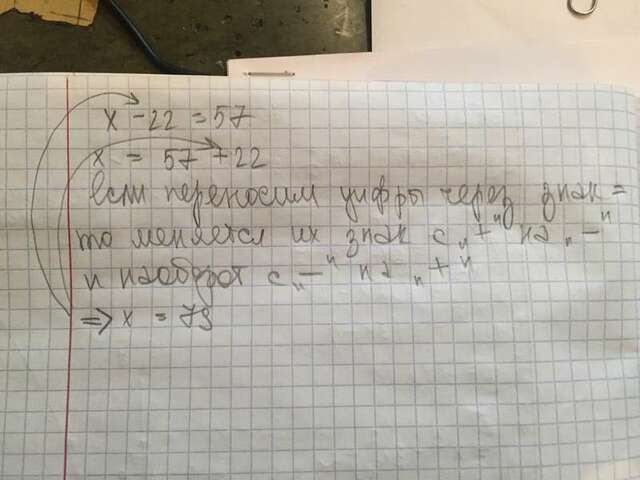 x - 22 = 57
x = 57 + 22
если переносим цифры через знак =
то меняется их знак с "+" на "-"
и наоборот с "-" на "+"
x = 79